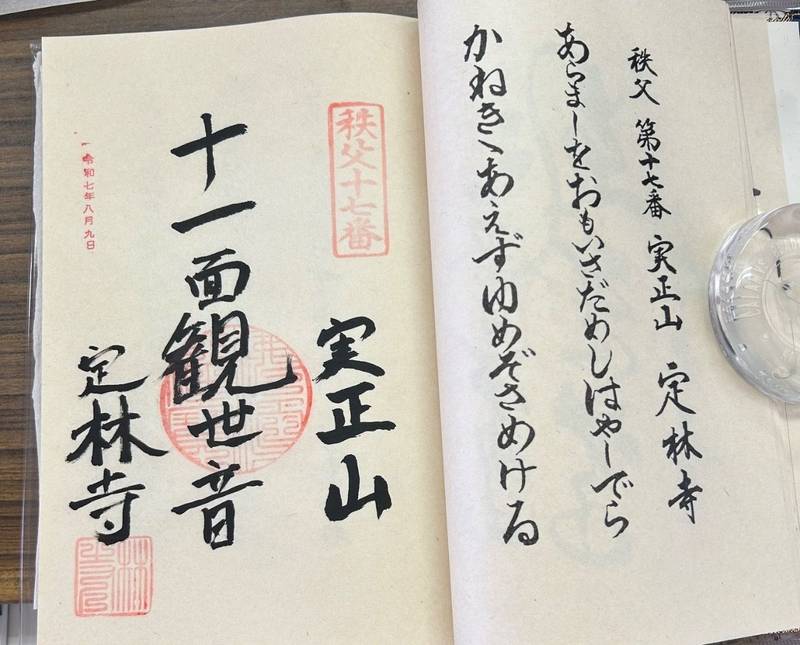 秩父 第十七番 実正山 定林寺
あらましをおもいさだめしはやしでら
かねきゝあえずゆめぞさめける
秩父十七番
実正山
十一面観世音
定林寺
令和七年八月九日